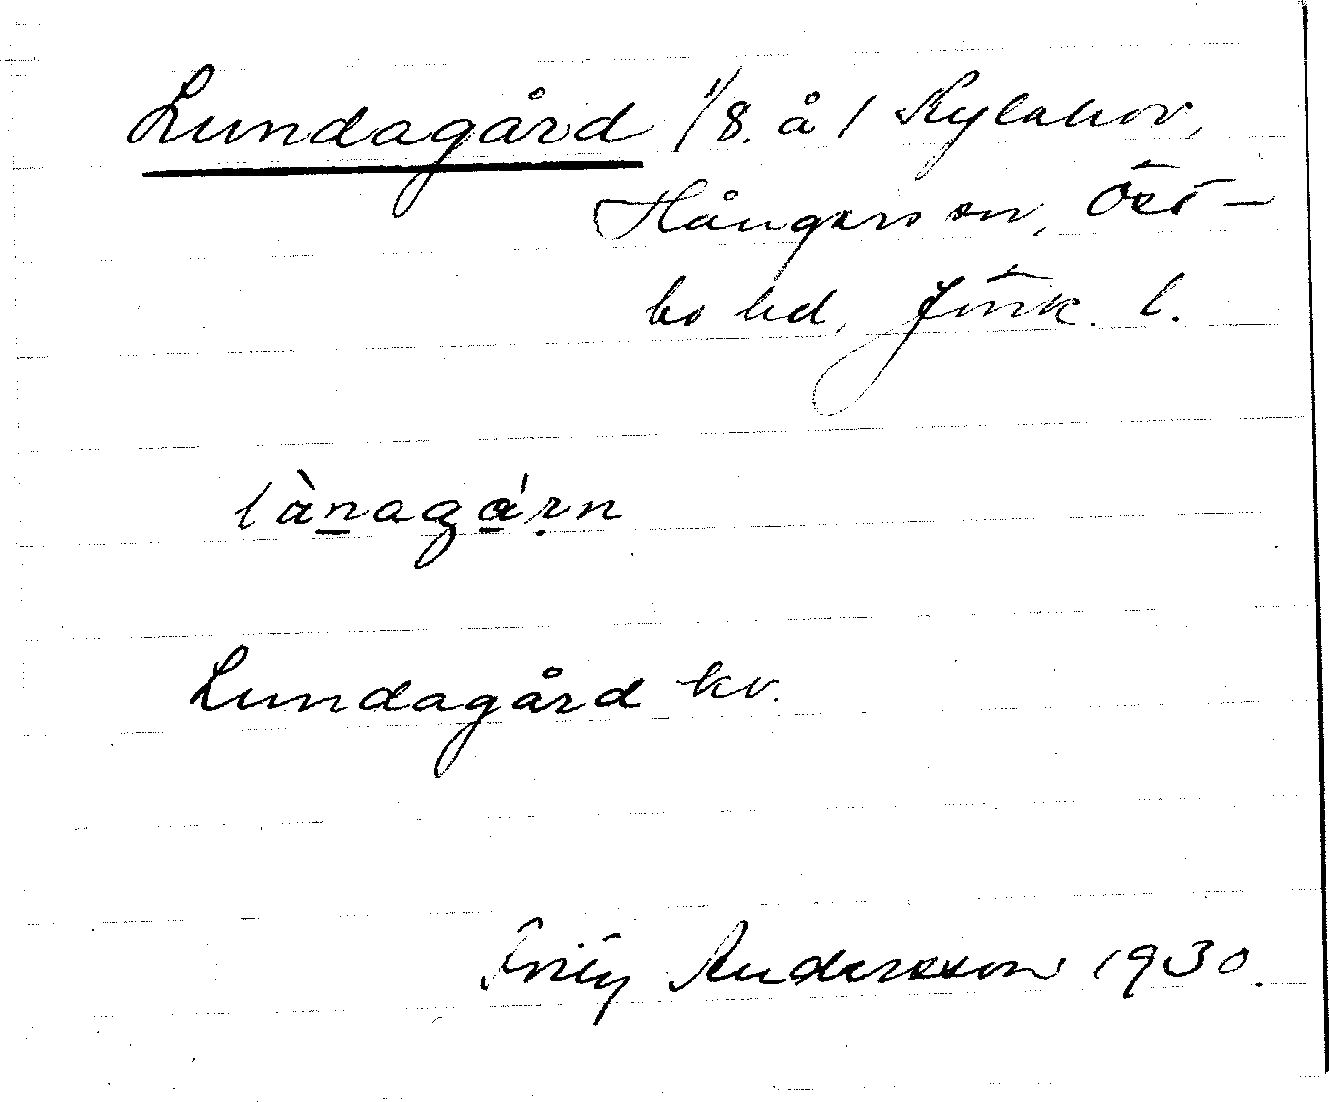 Lundagård 1/8. å 1 Kylahov,
Hångers sn, Öst-
bo hd, Jönk. l.
lànagárn
Lundagård kv.
Fritz Andersson 1930.